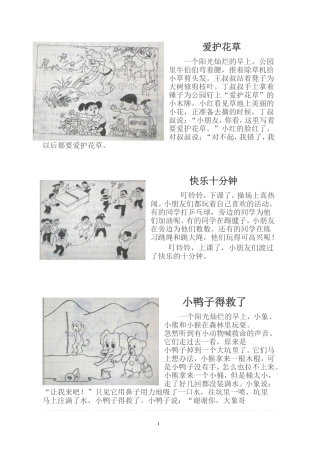 爱护花草
一个阳光灿烂的早上，公园
里牛伯伯弯着腰，推着除草机给
小草剪头发。王叔叔站着凳子为
大树修剪枝叶。丁叔叔手上拿着
锤子为公园钉上“爱护花草”的
小木牌。小红看见草地上美丽的
小花，正准备去摘的时候，丁叔
叔说：“小朋友，你看，这里写着
要爱护花草。”小红的脸红了，
对叔叔说：“对不起，我错了，我
以后都要爱护花草。
快乐十分钟
叮铃铃，下课了，操场上真热
闹。小朋友们都玩着自己喜欢的活动。
有的同学打乒乓球，旁边的同学为他
们加油呢。有的同学在踢毽子，小朋友
在旁边为他们数数。还有的同学在练
习跳绳和跳大绳，他们玩得可高兴呢！
叮铃铃，上课了，小朋友们渡过
了快乐的十分钟。
小鸭子得救了
一个阳光灿烂的早上，小象、
小熊和小猴在森林里玩耍。
忽然听到有小动物喊救命的声音。
它们走过去一看，原来是
小鸭子掉到一个大坑里了。它们马
上想办法，小猴拿来一根木棍，可
是小鸭子没有手，怎么也拉不上来。
小熊拿来一个小桶，但是桶太小，
走了好几回都没装满水。小象说：
“让我来吧！”只见它用鼻子用力地吸了一口水，往坑里一喷，坑里
马上注满了水，小鸭子得救了。小鸭子说：“谢谢你，大象哥
1